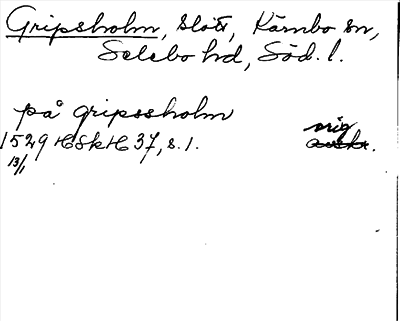 Gripsholm, slott, Kärnbo sn,
Selebo hd, Söd. l.
på gripssholm
orig
1529 HSkH 37, s. 1. avskr.
13/1